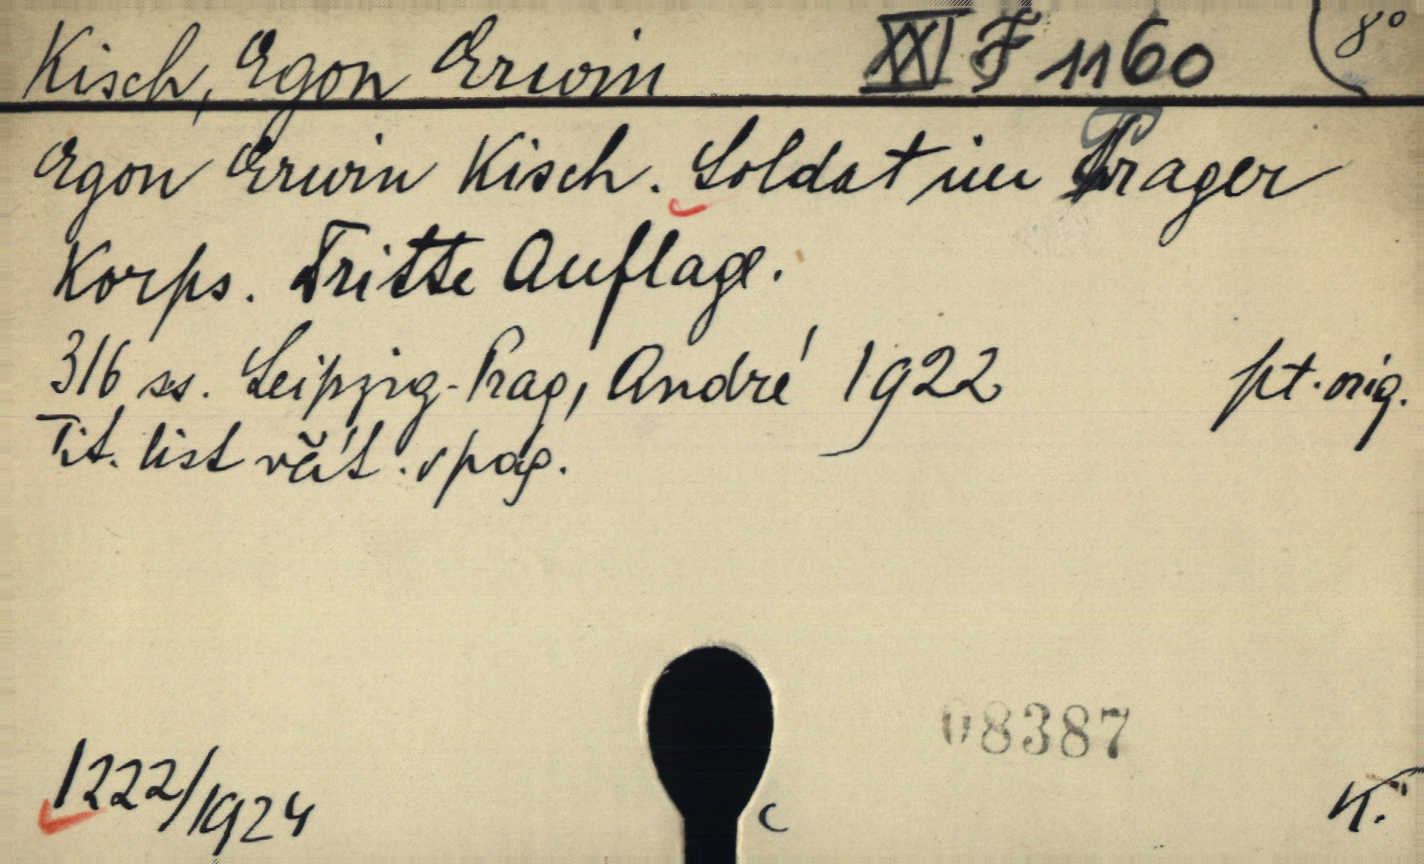 Kisch, Egon Erwin XXI F 1160 8°
Egon Erwin Kisch. Soldat im Prager
Korps. Dritte Auflage.
316 ss. Leipzig-Prag, André 1922 pt. orig.
Tit. list včít. v pag.
08387
1222/1924 K.